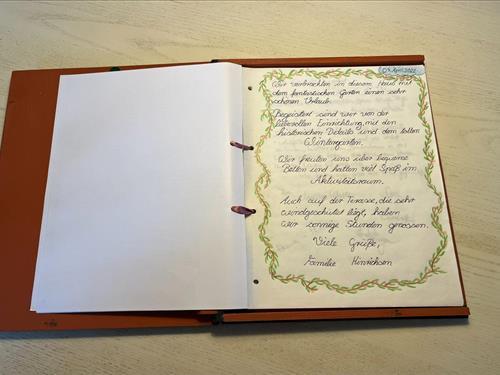 04. April 2022
Wir verbrachten in diesem Haus mit
dem fantastischen Garten einen sehr
schönen Urlaub.
Begeistert sind wir von der
liebevollen Einrichtung, mit den
historischen Details und dem tollen
Wintergarten.
Wir freuten uns über bequeme
Betten und hatten viel Spaß im
Aktivitätsraum.
Auch auf der Terasse, die sehr
windgeschützt liegt, haben
wir sonnige Stunden genossen.
Viele Grüße,
Familie Hinrichsen